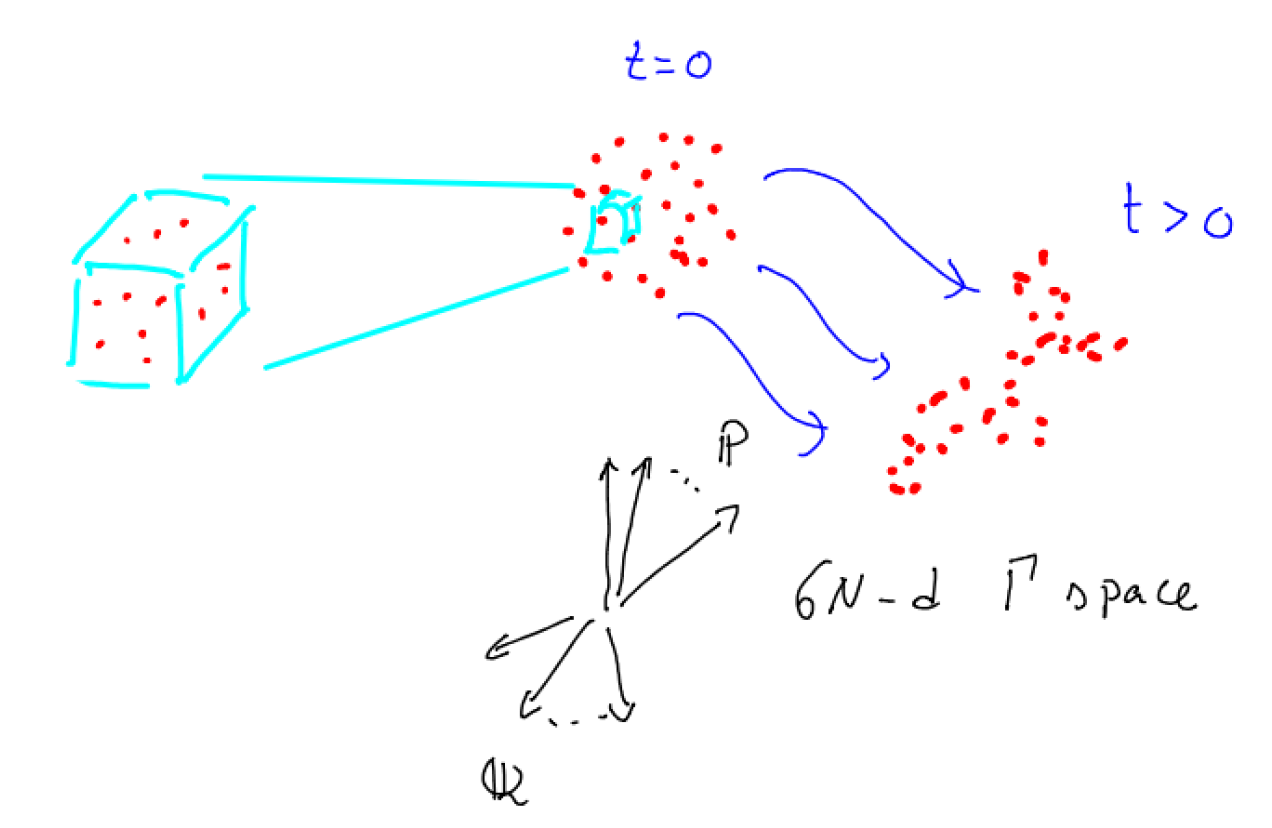 t=0
t > 0
ℙ
6N-d Γ space
ℚ